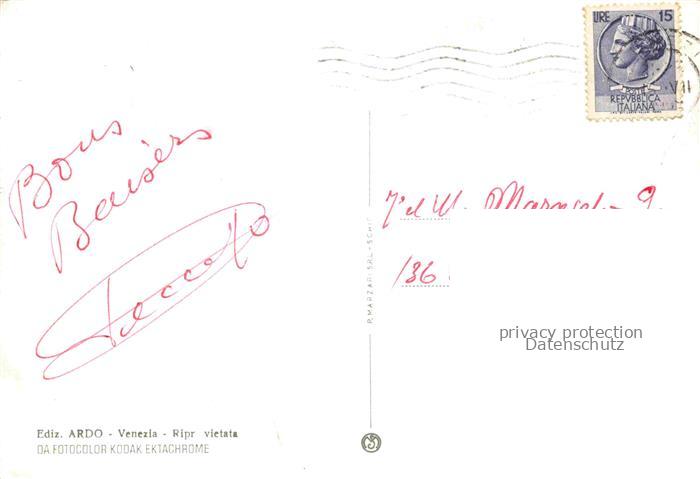 LIRE 15
POSTE
REPVBBLICA
ITALIANA
VII
Bons
Baisers
136
P. MARZARI S.R.L. - SCHIO
privacy protection
Datenschutz
Ediz. ARDO - Venezia - Ripr vietata
DA FOTOCOLOR KODAK EKTACHROME